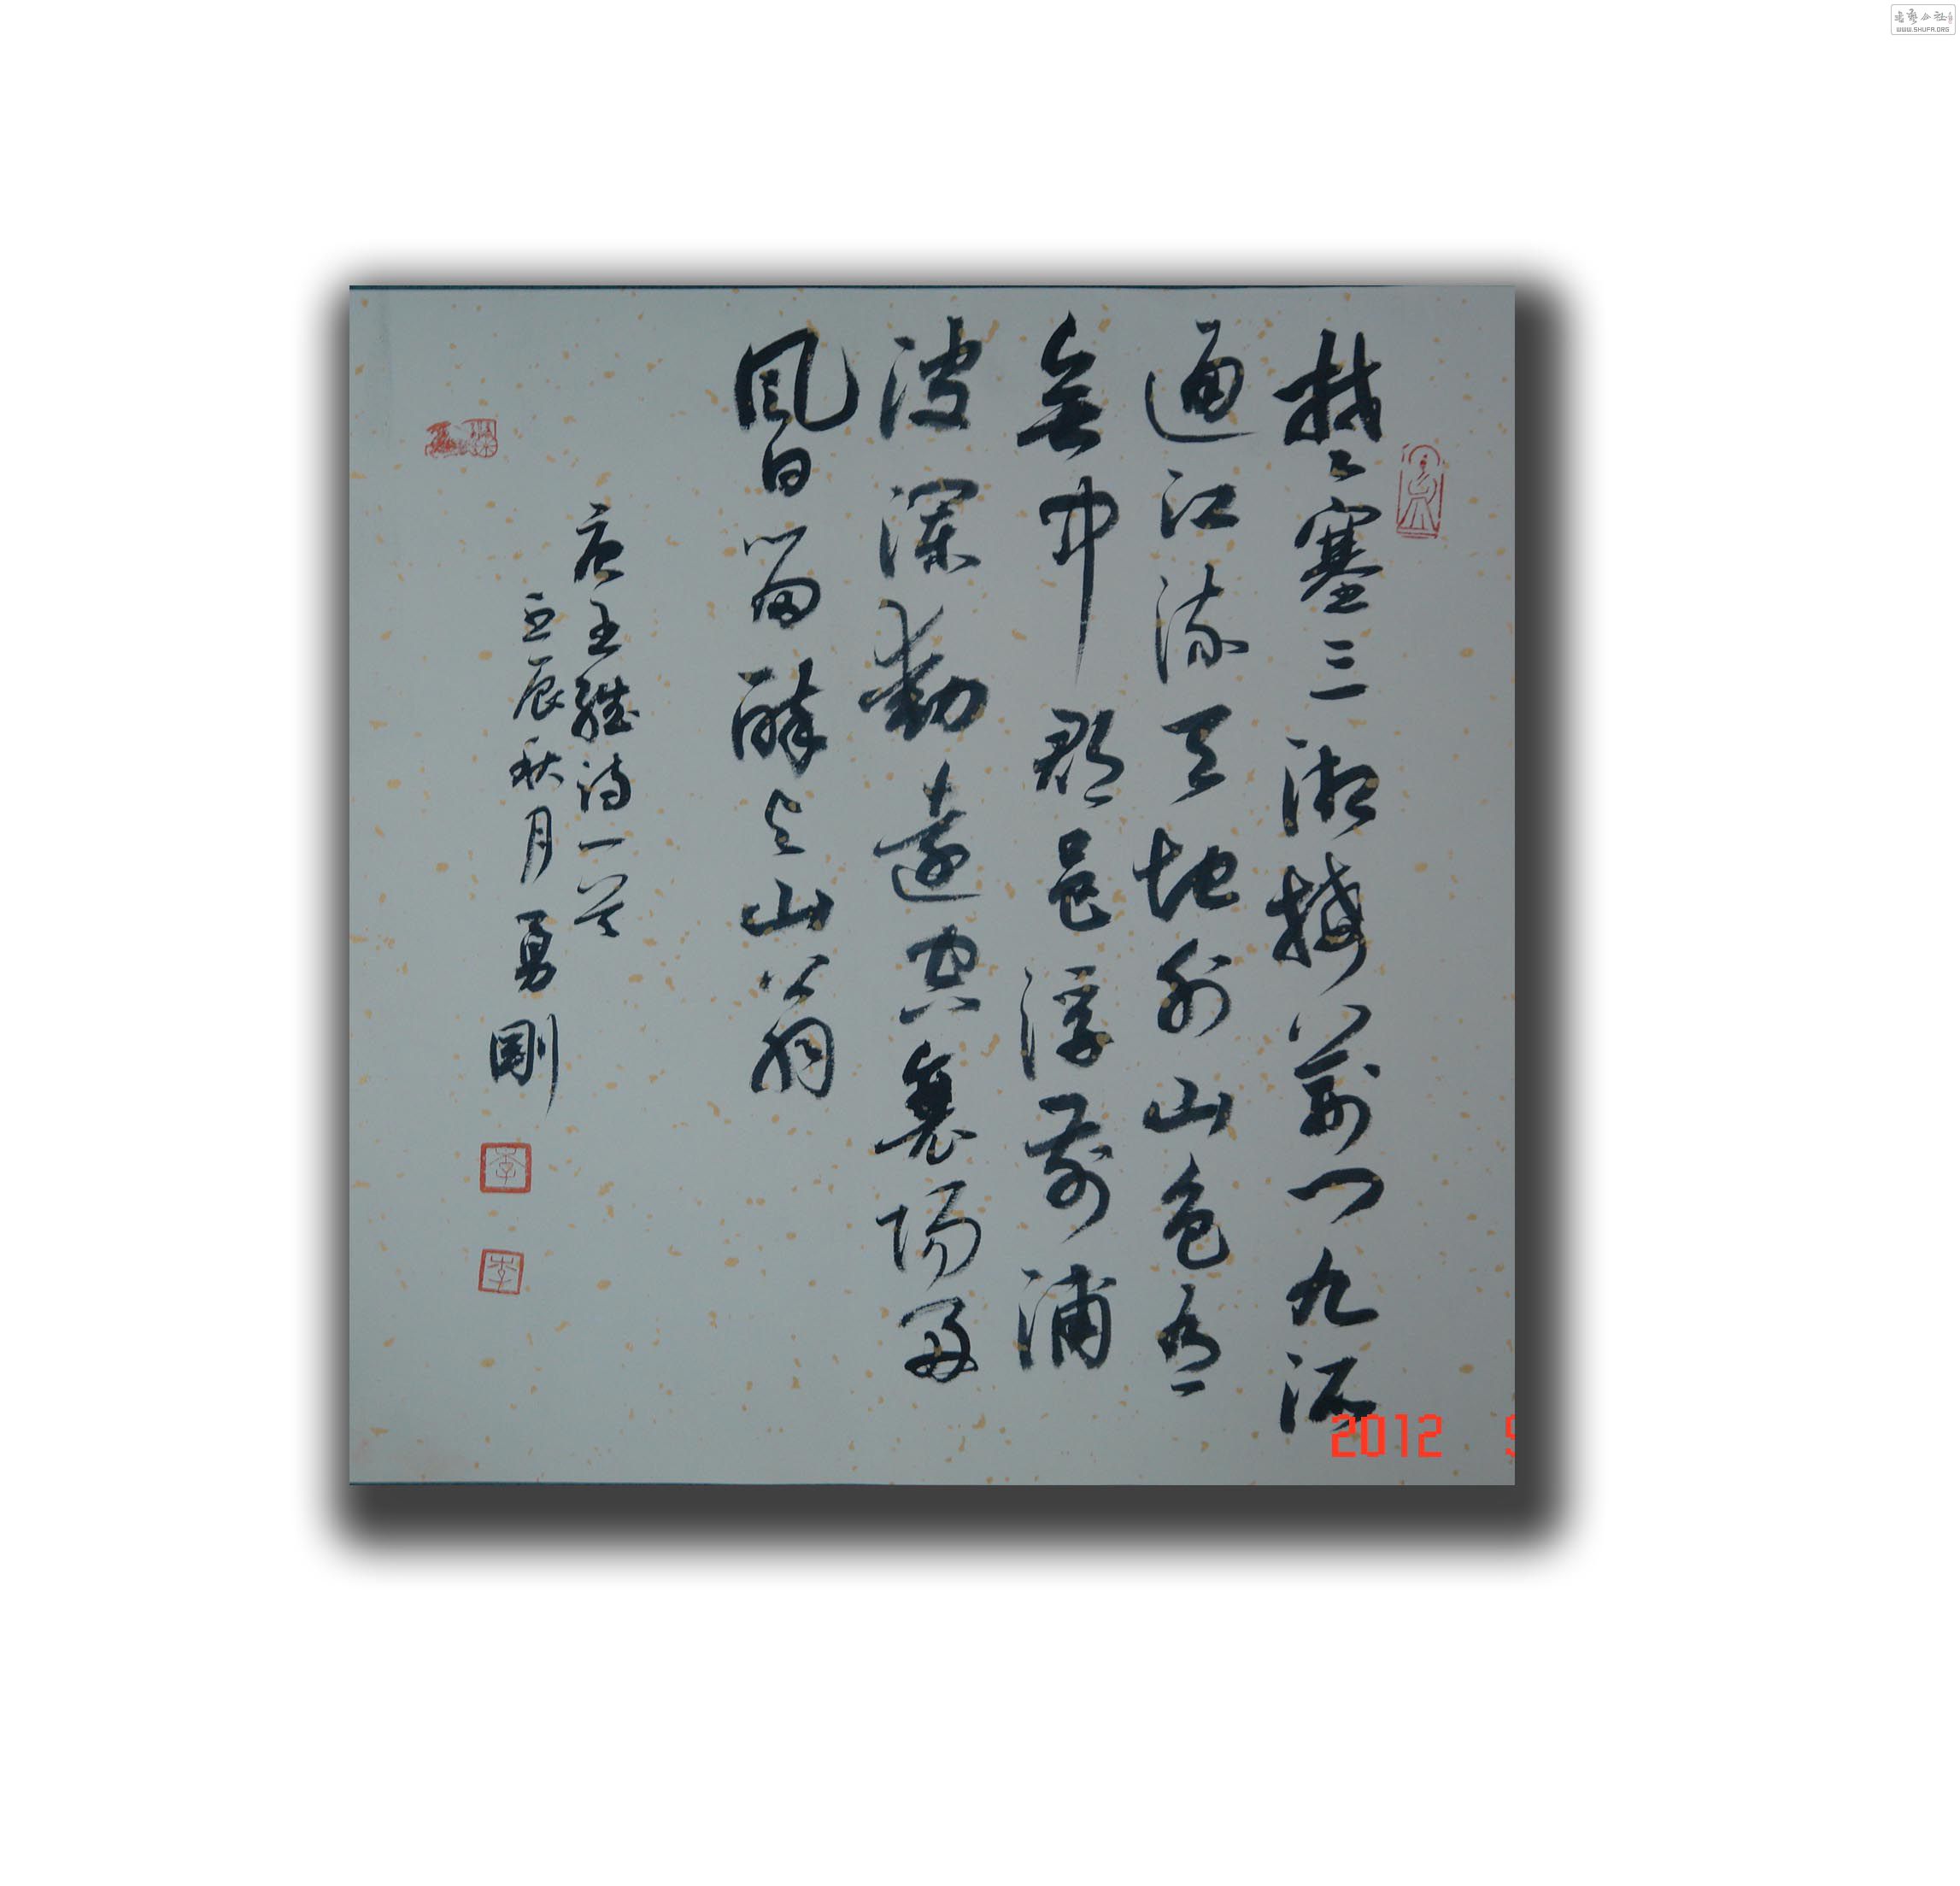 楚塞三湘接荊門九派
通江流天地外山色有
無中郡邑浮前浦
波瀾動遠空襄陽好
風日留醉與山翁
唐王維詩一首
壬辰秋月勇剛
2012
书艺公社
WWW.SHUFA.ORG